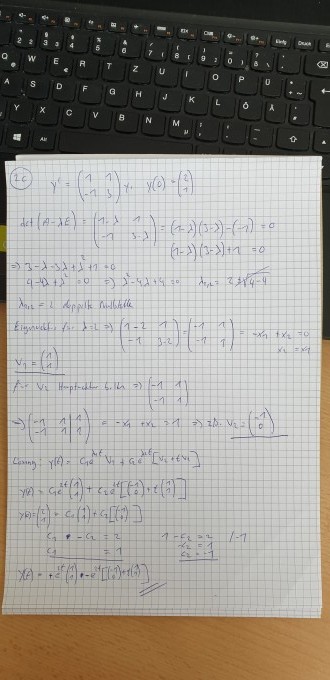 2c) y' = (1 1 / -1 3) y, y(0) = (2 / 1)
det(A-λE) = (1-λ 1 / -1 3-λ) = (1-λ)(3-λ)-(-1) = 0
(1-λ)(3-λ)+1 = 0
=> 3-λ-3λ+λ²+1=0
4-4λ+λ²=0 => λ²-4λ+4=0 λ1/2 = 2±√4-4
λ1/2 = 2 doppelte Nullstelle
Eigenvektor für λ=2 => (1-2 1 / -1 3-2) = (-1 1 / -1 1) = -x1 + x2 = 0
x2 = x1
V1 = (1 / 1)
für V2 Hauptvektor bilden => (-1 1 / -1 1)
=> (-1 1 | 1 / -1 1 | 1) = -x1 + x2 = 1 => z.B. V2 = (-1 / 0)
Lösung: y(t) = C1e^λt V1 + C2e^λt [V2 + tV1]
y(t) = C1e^2t (1 / 1) + C2e^2t [(-1 / 0) + t(1 / 1)]
y(0) = (2 / 1) = C1(1 / 1) + C2[(-1 / 0)]
C1 - C2 = 2 1 - C2 = 2 /-1
C1 = 1
C2 = -1
y(t) = +e^2t (1 / 1) - e^2t [(-1 / 0) + t(1 / 1)]